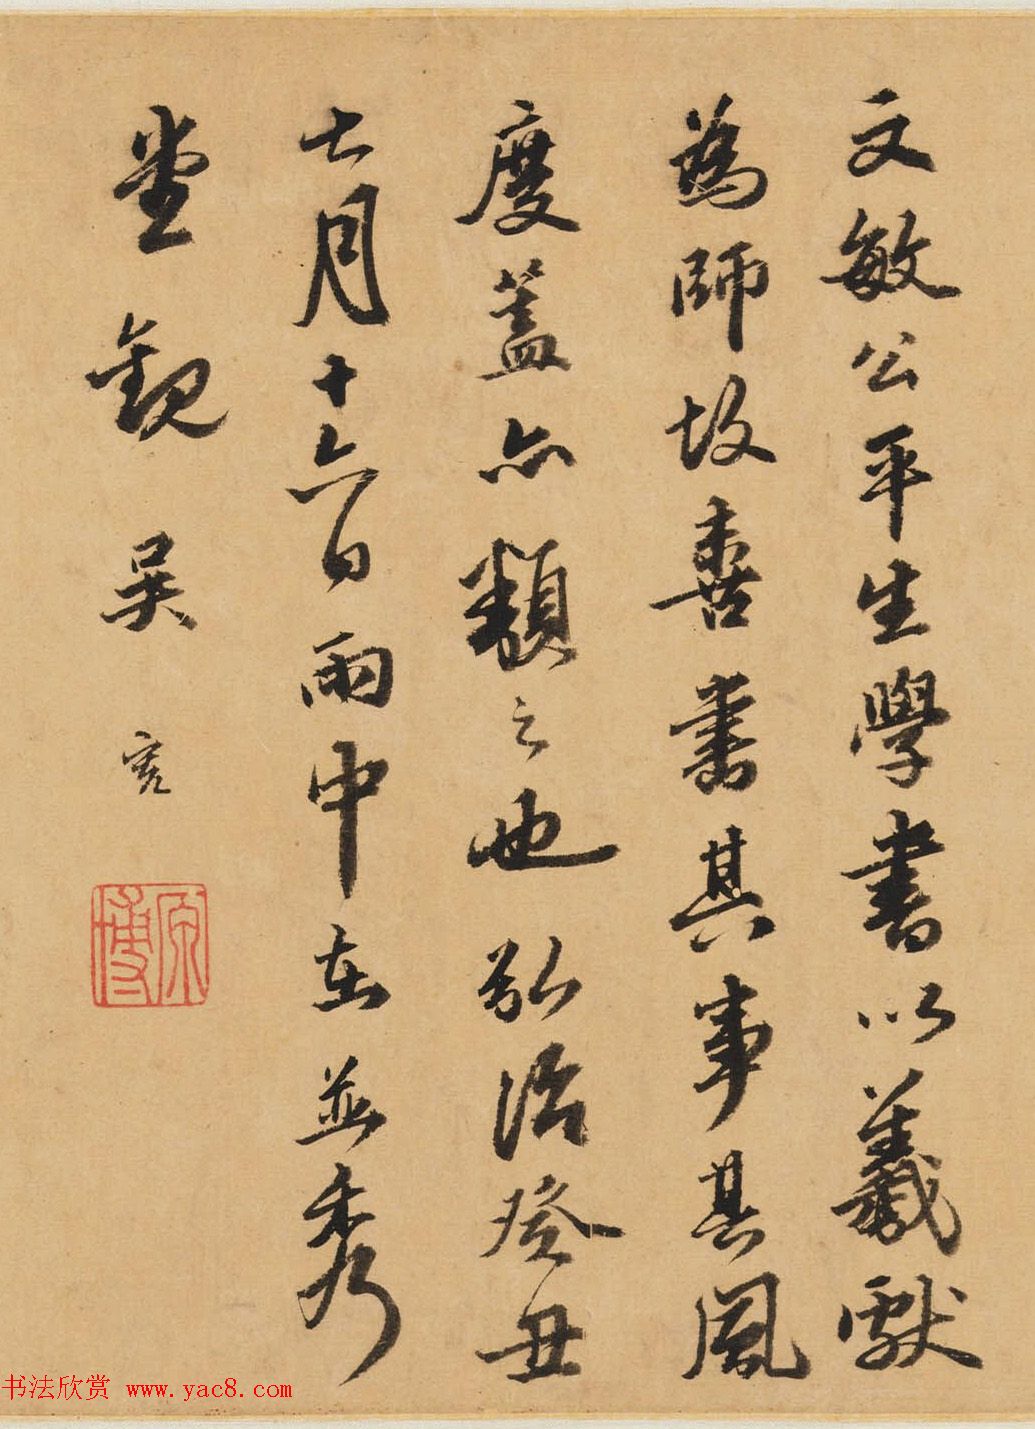 文敏公平生學書以羲獻
為師故喜書其事其風
度蓋亦類之也弘治癸丑
七月十六日雨中在並秀
堂觀吳寬
原博
书法欣赏 www.yac8.com